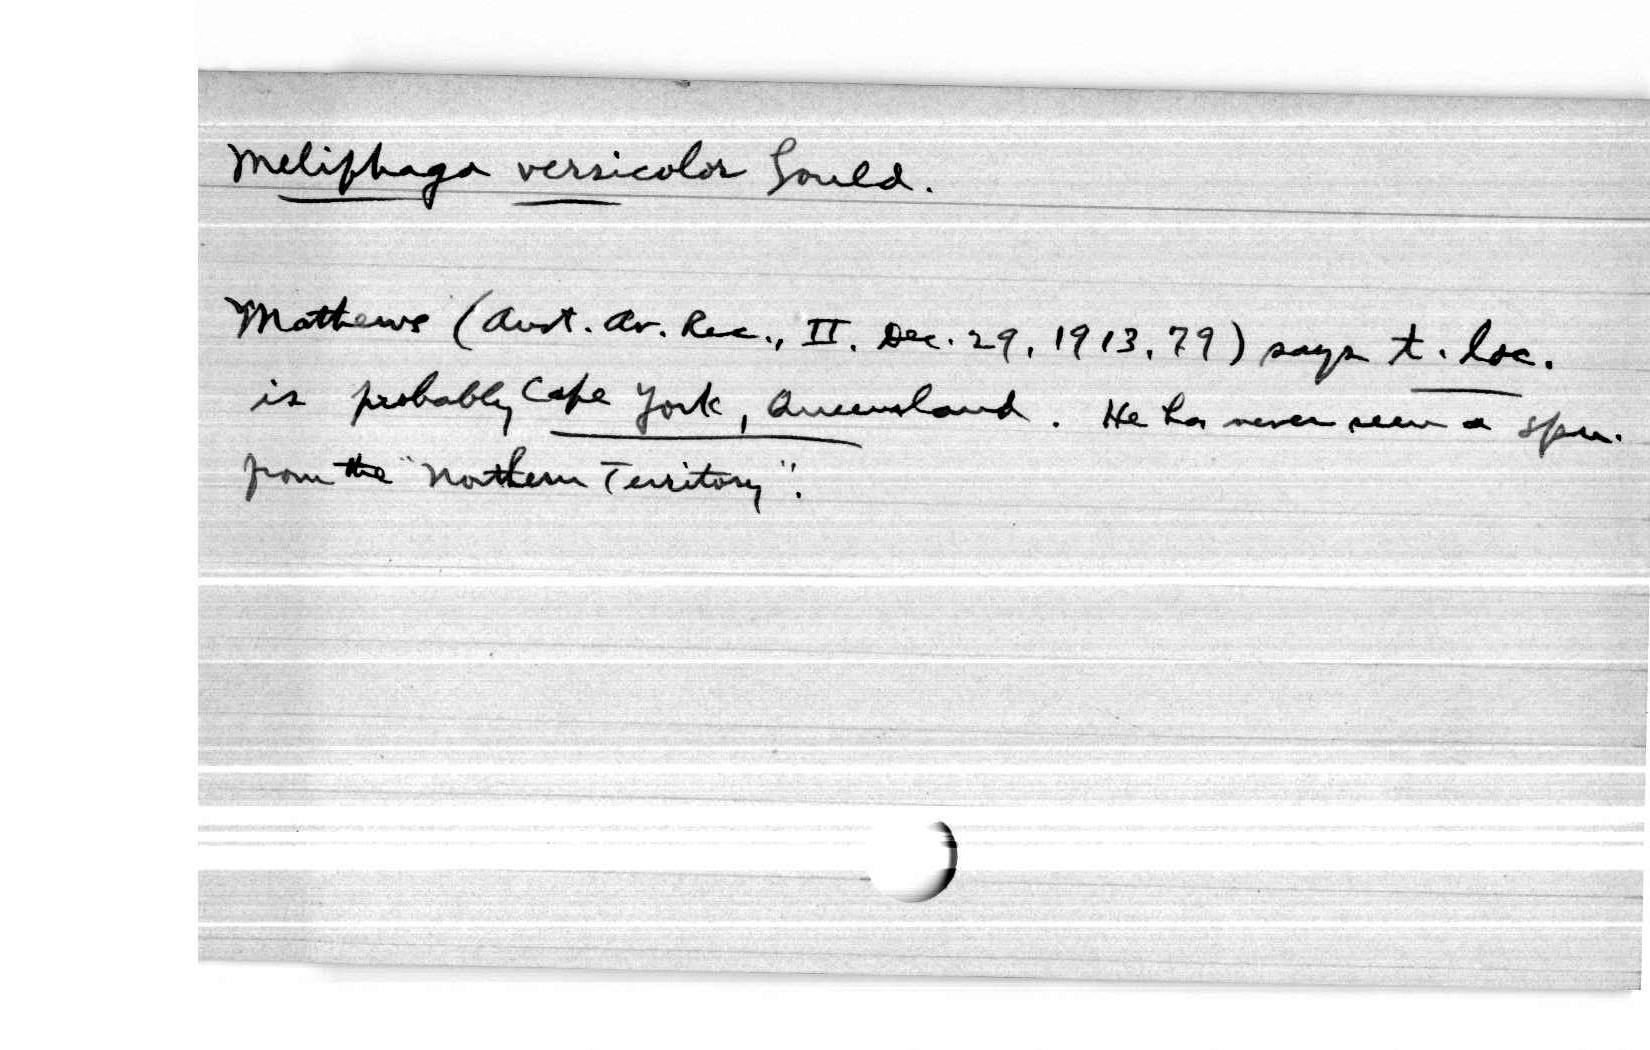 Meliphaga versicolor Gould.
Mathews (Aust. Av. Rec., II. Dec. 29, 1913, 79) says t. loc.
is probably Cape York, Queensland. He has never seen a spm.
from the "Northern Territory".